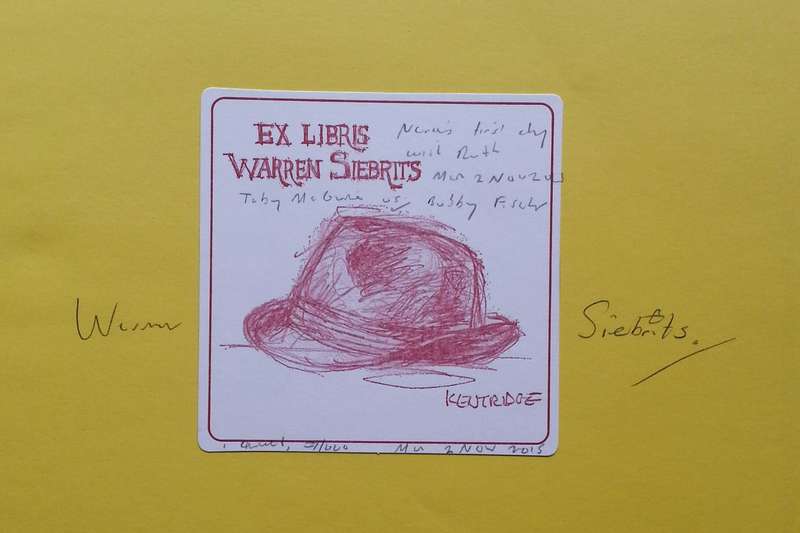 EX LIBRIS
WARREN SIEBRITS
first day
with Ruth
Mon 2 NOV 2015
Toby McGuire vs Bobby Fischer
Warren
Siebrits.
KENTRIDGE
Mon 2 NOV 2015